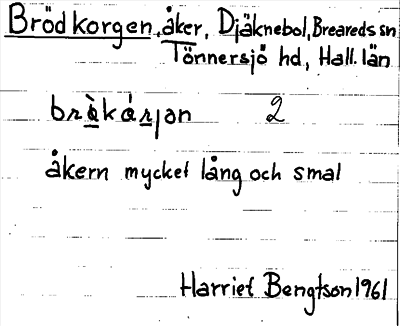 Brödkorgen, åker, Djäknebol, Breareds sn
Tönnersjö hd, Hall. län
brằkȧrjan 2
åkern mycket lång och smal
Harriet Bengtson 1961